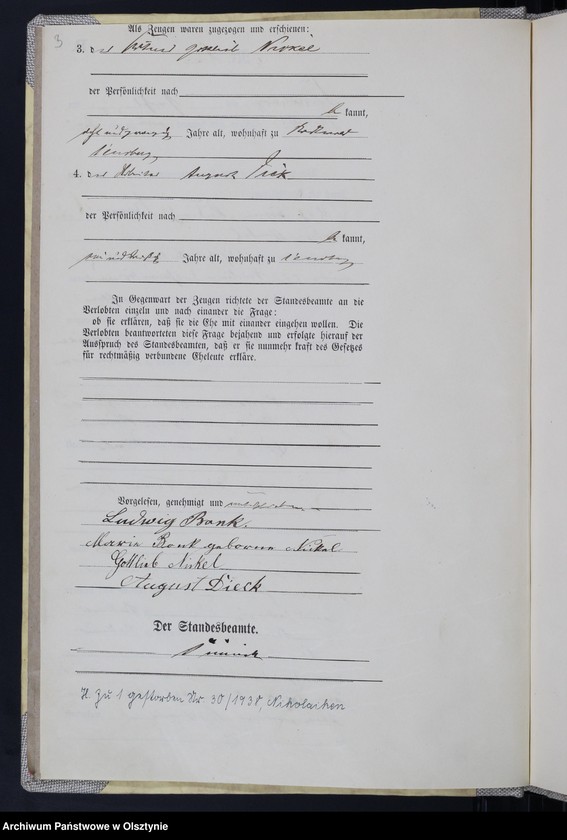 3
Als Zeugen waren zugezogen und erschienen:
3. der Gottlieb Nickel
der Persönlichkeit nach
be kannt,
Jahre alt, wohnhaft zu
4. der August Dieck
der Persönlichkeit nach
be kannt,
Jahre alt, wohnhaft zu
In Gegenwart der Zeugen richtete der Standesbeamte an die
Verlobten einzeln und nach einander die Frage:
ob sie erklären, daß sie die Ehe mit einander eingehen wollen. Die
Verlobten beantworteten diese Frage bejahend und erfolgte hierauf der
Ausspruch des Standesbeamten, daß er sie nunmehr kraft des Gesetzes
für rechtmäßig verbundene Eheleute erkläre.
Vorgelesen, genehmigt und
Ludwig Bonk.
Marie Bonk geborene Nickel.
Gottlieb Nickel
August Dieck
Der Standesbeamte.
H. zu 1 gestorben Nr. 30/1938, Nikolaiken
Archiwum Państwowe w Olsztynie